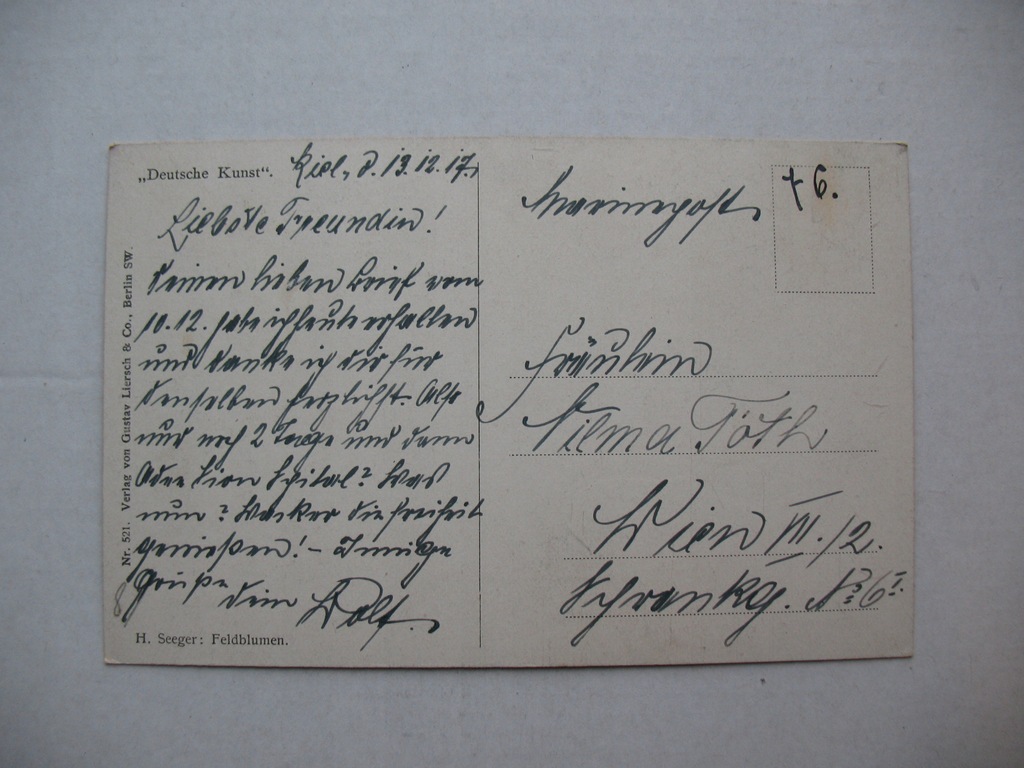 „Deutsche Kunst“.
Kiel, d. 13.12.17.
Liebste Freundin!
Deinen lieben Brief vom
10.12. habe ich heute erhalten
und danke ich dir für
denselben herzlichst. Also
nur noch 2 Tage und dann
Adee Spital? Was
nun? Wacker die Freiheit
genießen! – Innige
Grüße dein Wolf.
Nr. 521. Verlag von Gustav Liersch & Co., Berlin SW.
H. Seeger: Feldblumen.
Marinepost.
+ 6.
Fräulein
Vilma Tóth
Wien VII./2.
Schrankg. No 6 I.